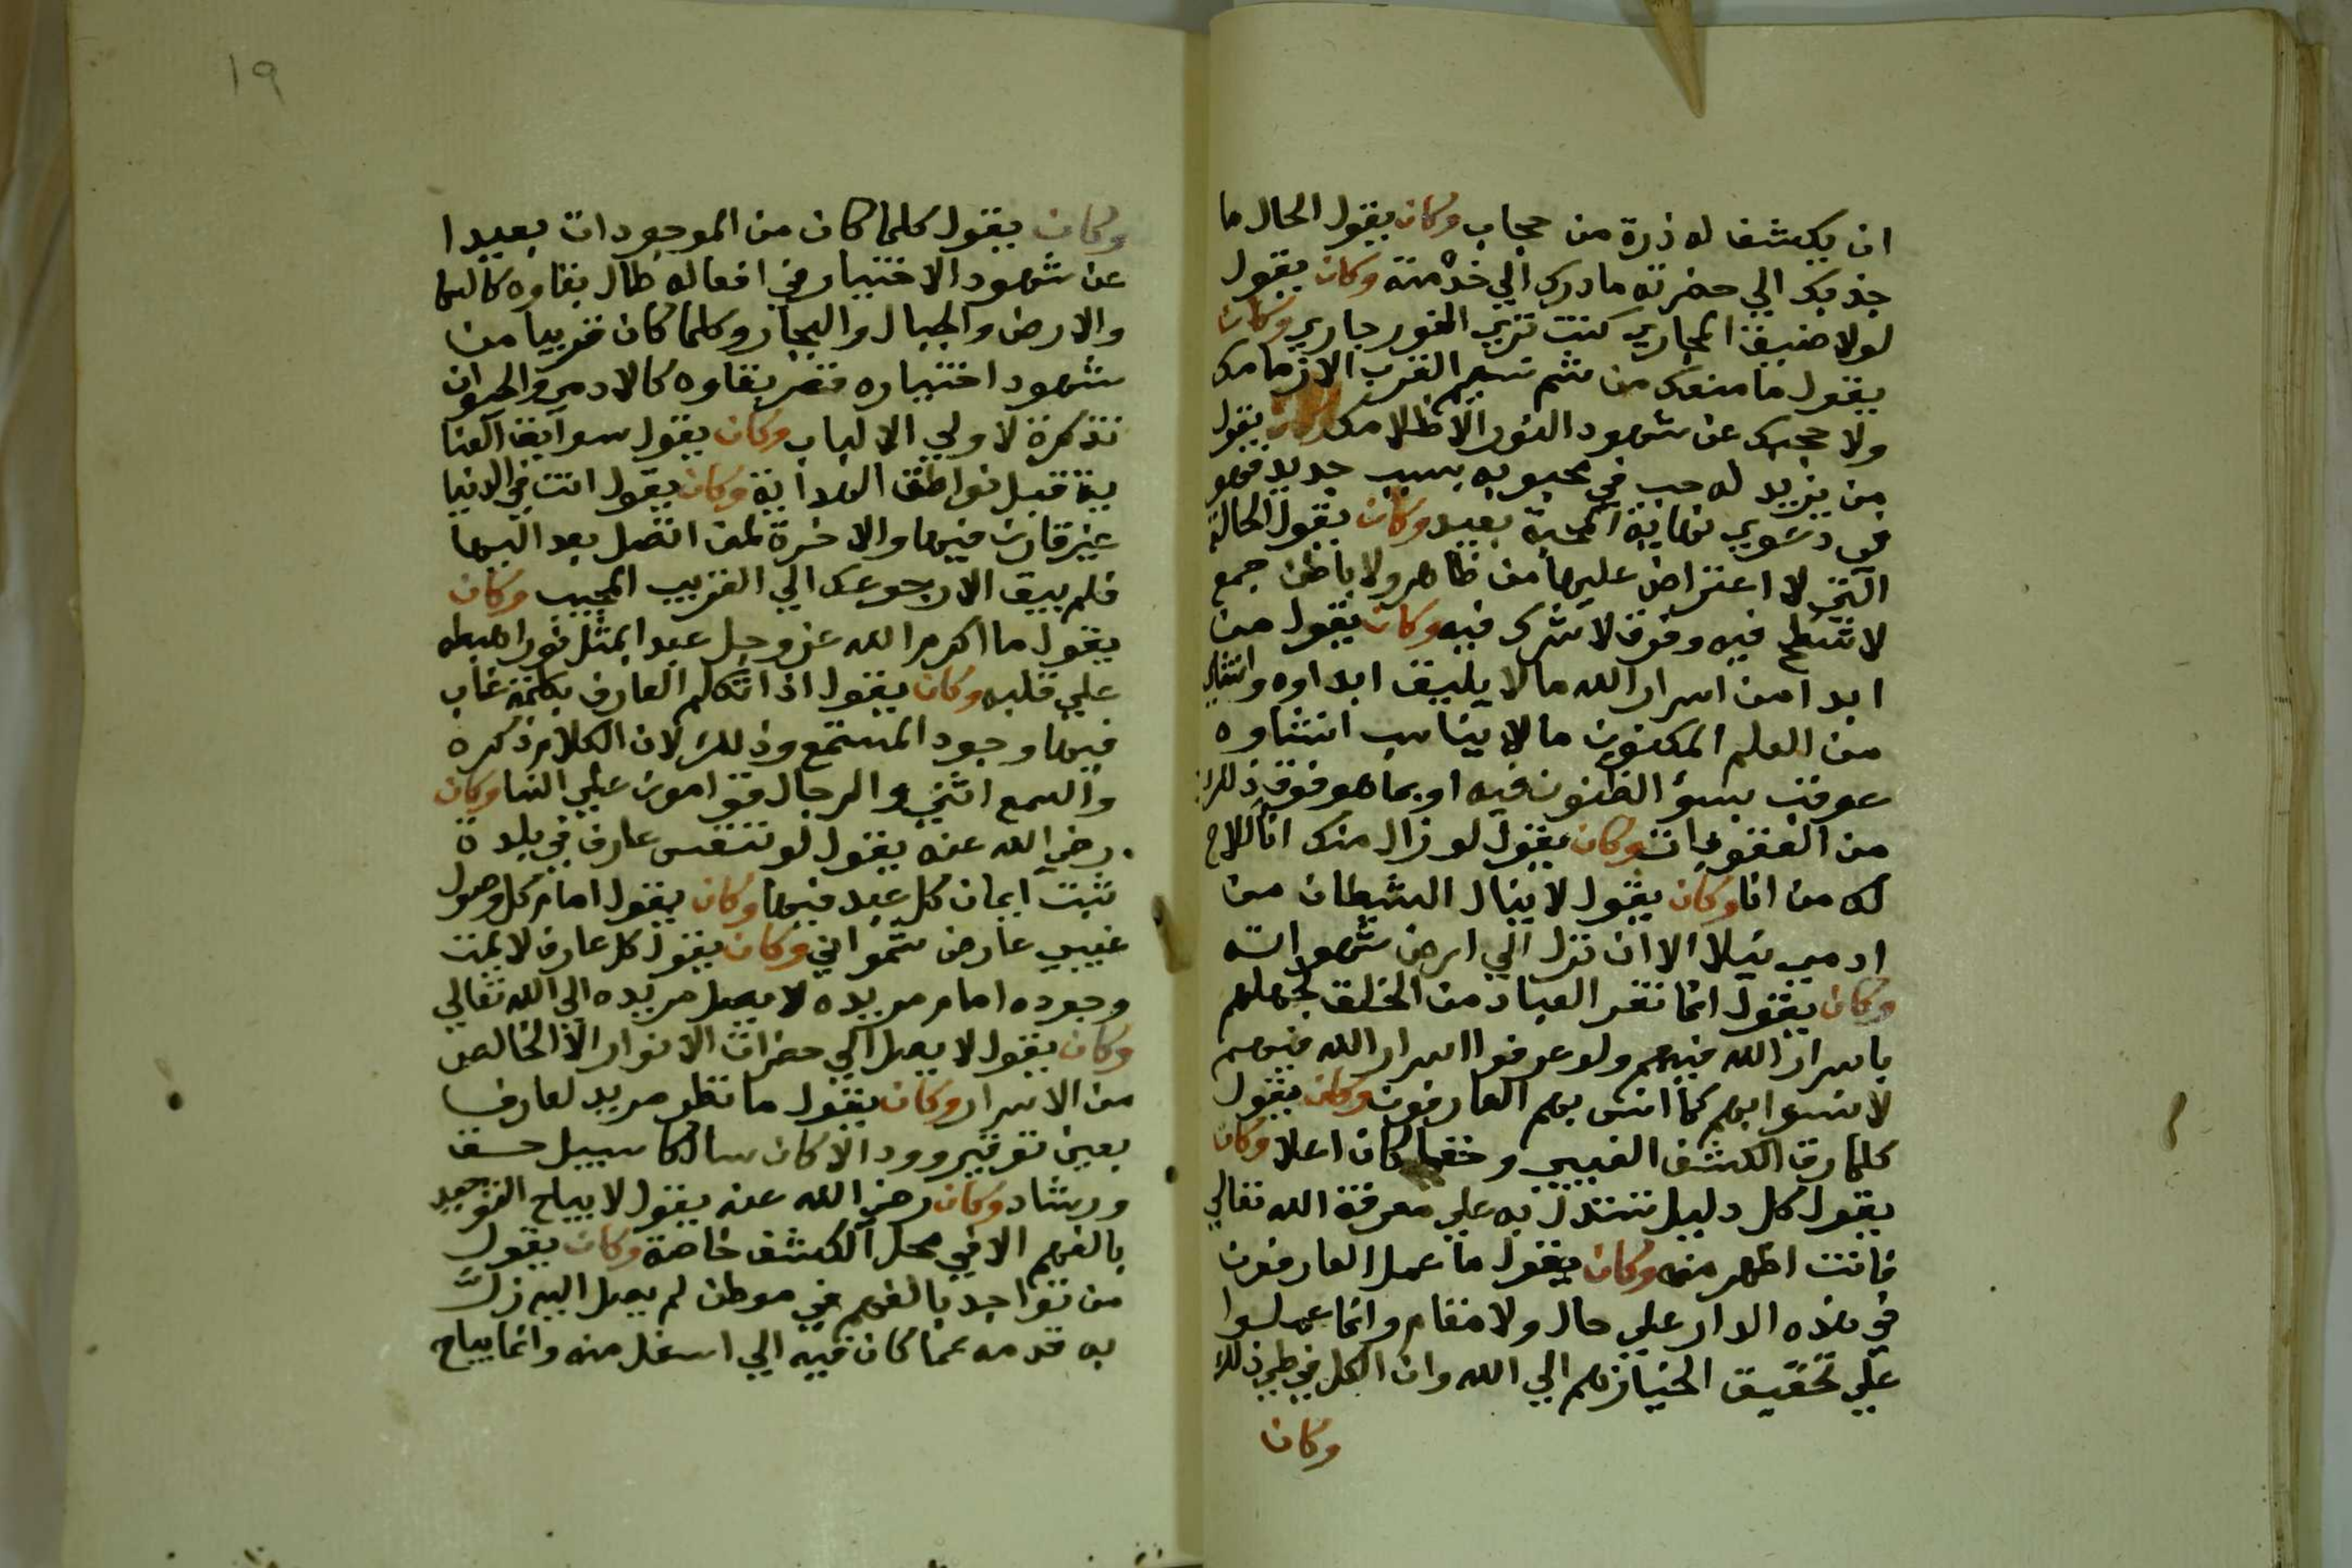 ان يكشف له ذرة من حجاب وكان يقول الحال ما
جذبك الي حضرته ما دردك الي خدمته وكان يقول
لولا ضيق المجاري كنت تري النور جاري وكان
يقول ما منعك من شم نسيم القرب الا زكامك
ولا حجبك عن شهود النور الا ظلامك وكان يقول
من يزيد له حب في محبوبه بسبب جديد فهو
في دعوي نهاية المحبة بعيد وكان يقول الحالة
التي لا اعتراض عليها من ظاهر ولا باطن جمع
لا شطح فيه وفرق لا شرك فيه وكان يقول من
ابدا من اسرار الله ما لا يليق ابداوه وافشا
من العلم المكنون ما لا يناسب افشاوه
عوقب بسؤ الظنون فيه او بما هو فوق ذلك
من العقوبات وكان يقول لو زال منك انا للاح
لك من انا وكان يقول لا ينال الشيطان من
ادمي نيلا الا ان نزل الي ارض شهواته
وكان يقول انما نفر العباد من الخلق لجهلهم
باسرار الله فيهم ولو عرفوا اسرار الله فيهم
لانسوا بهم كما انس بهم العارفون وكان يقول
كلما رق الكشف الغيبي وخفي كان اعلا وكان
يقول كل دليل تستدل به علي معرفة الله تعالي
فانت اظهر منه وكان يقول ما عمل العارفون
في هذه الدار علي حال ولا مقام وانما عملوا
علي تحقيق انحيازهم الي الله وان الكل في طي ذلك
وكان
١٩
وكان يقول كلما كان من الموجودات بعيدا
عن شهود الاختيار في افعاله طال بقاوه كالسما
والارض والجبال والبحار وكلما كان قريبا من
شهود اختياره قصر بقاوه كالادمي والحيوان
تذكرة لاولي الالباب وكان يقول سوابق العنا
ية قبل نواطق الهداية وكان يقول انت في الدنيا
غير قارن فيها والاخرة لمن اتصل بعد اليها
فلم يبق الا رجوعك الي القريب المجيب وكان
يقول ما اكرم الله عز وجل عبدا بمثل نور اهبطه
علي قلبه وكان يقول اذا تكلم العارف بكلمة غاب
فيها وجود المستمع وذلك لان الكلام ذكره
والسمع انثي والرجال قوامون علي النسا وكان
رضي الله عنه يقول لو تنفس عارف في بلدة
ثبت ايمان كل عبد فيها وكان يقول امام كل وصول
غيبي عارض شهواني وكان يقول كل عارف لا يمت
وجوده امام مريده لا يصل مريده الي الله تعالي
وكان يقول لا يصل الي حضرات الانوار الا الخالص
من الاسرار وكان يقول ما نظر مريد لعارف
بعين توقير وود الا كان سالكا سبيل حسن
ورشاد وكان رضي الله عنه يقول لا يباح التوحيد
بالفهم الا في محل الكشف خاصة وكان يقول
من تواجد بالفهم في موطن لم يصل اليه زلت
به قدمه عما كان فيه الي اسفل منه وانما يباح